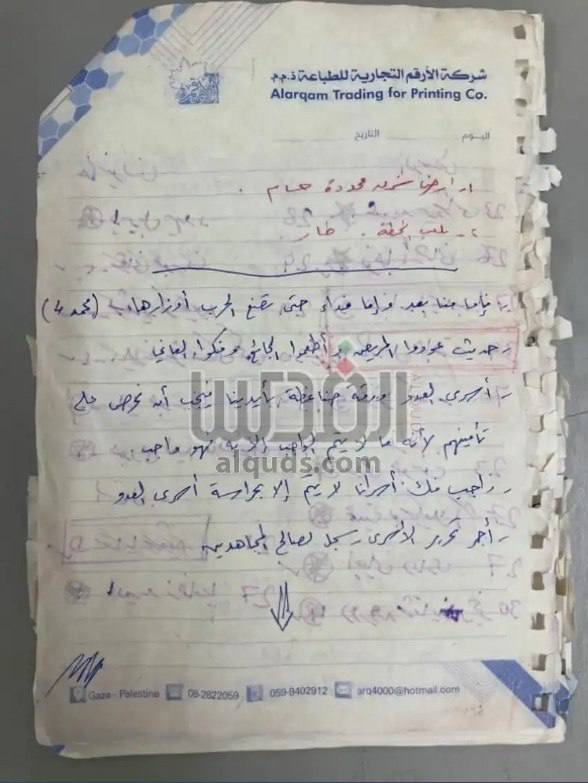 شركة الأرقم التجارية للطباعة ذ.م.م
Alarqam Trading for Printing Co.
اليوم التاريخ
1- أرضنا محدودة
2-
فإما منا بعد وإما فداء حتى تضع الحرب أوزارها (محمد 4)
- حديث عودوا المريض وأطعموا الجائع وفكوا العاني
- أسرى العدو ورقة ضاغطة بأيدينا فيجب أن نحرص على
تأمينهم لأنه ما لا يتم الواجب إلا به فهو واجب
- واجب فك أسرانا لا يتم إلا بحراسة أسرى العدو
- أجر تحرير الأسرى يسجل لصالح المجاهدين
القدس
alquds.com
Gaza - Palestine 08-2822059 059-8402912 arq4000@hotmail.com